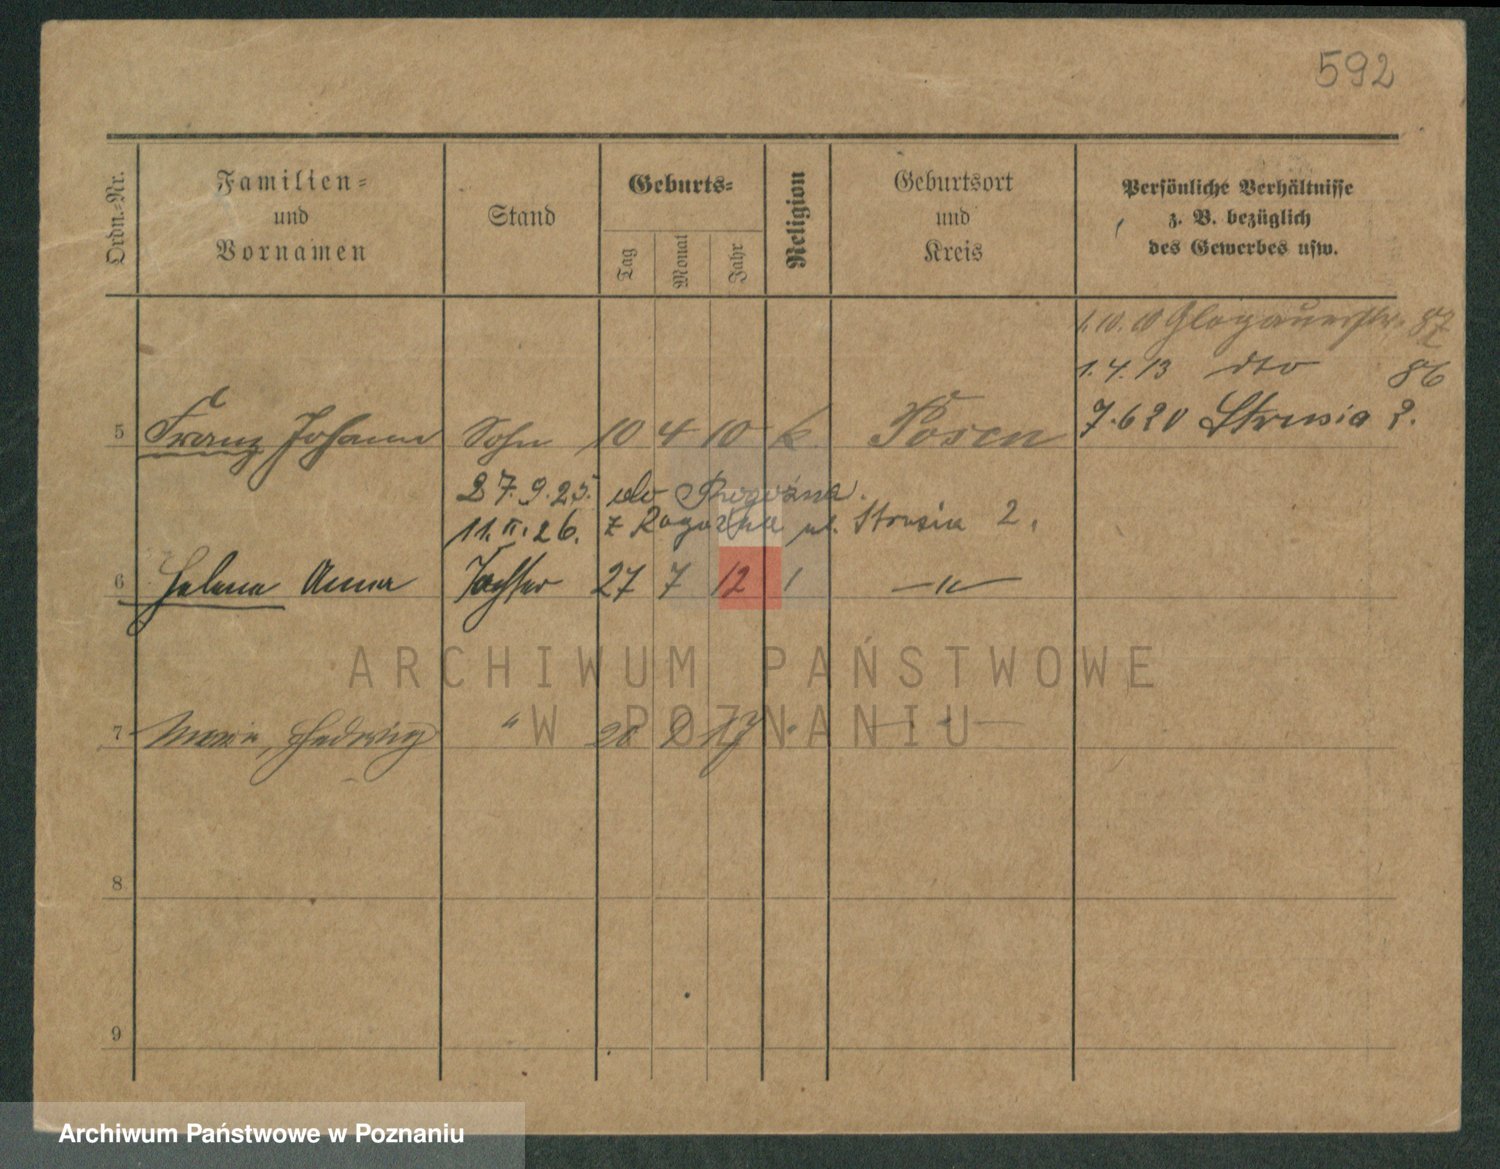 592
Ordn.-Nr.
Familien-
und
Vornamen
Stand
Geburts-
Tag
Monat
Jahr
Religion
Geburtsort
und
Kreis
Persönliche Verhältnisse
z. B. bezüglich
des Gewerbes usw.
1.10.10 Glogauerstr. 87
1.4.13 dto 86
7.6 20 Strusia 2.
5 Franz Johann Sohn 10 4 10 k. Posen
27.9.25. do Rogoźna.
11.II.26. z Rogoźna ul. Strusia 2.
6 Helene Anna Tochter 27 7 12 " —"—
7 Maria, Hedwig " 28 17 " —"—
8
9
ARCHIWUM PAŃSTWOWE
W POZNANIU
Archiwum Państwowe w Poznaniu